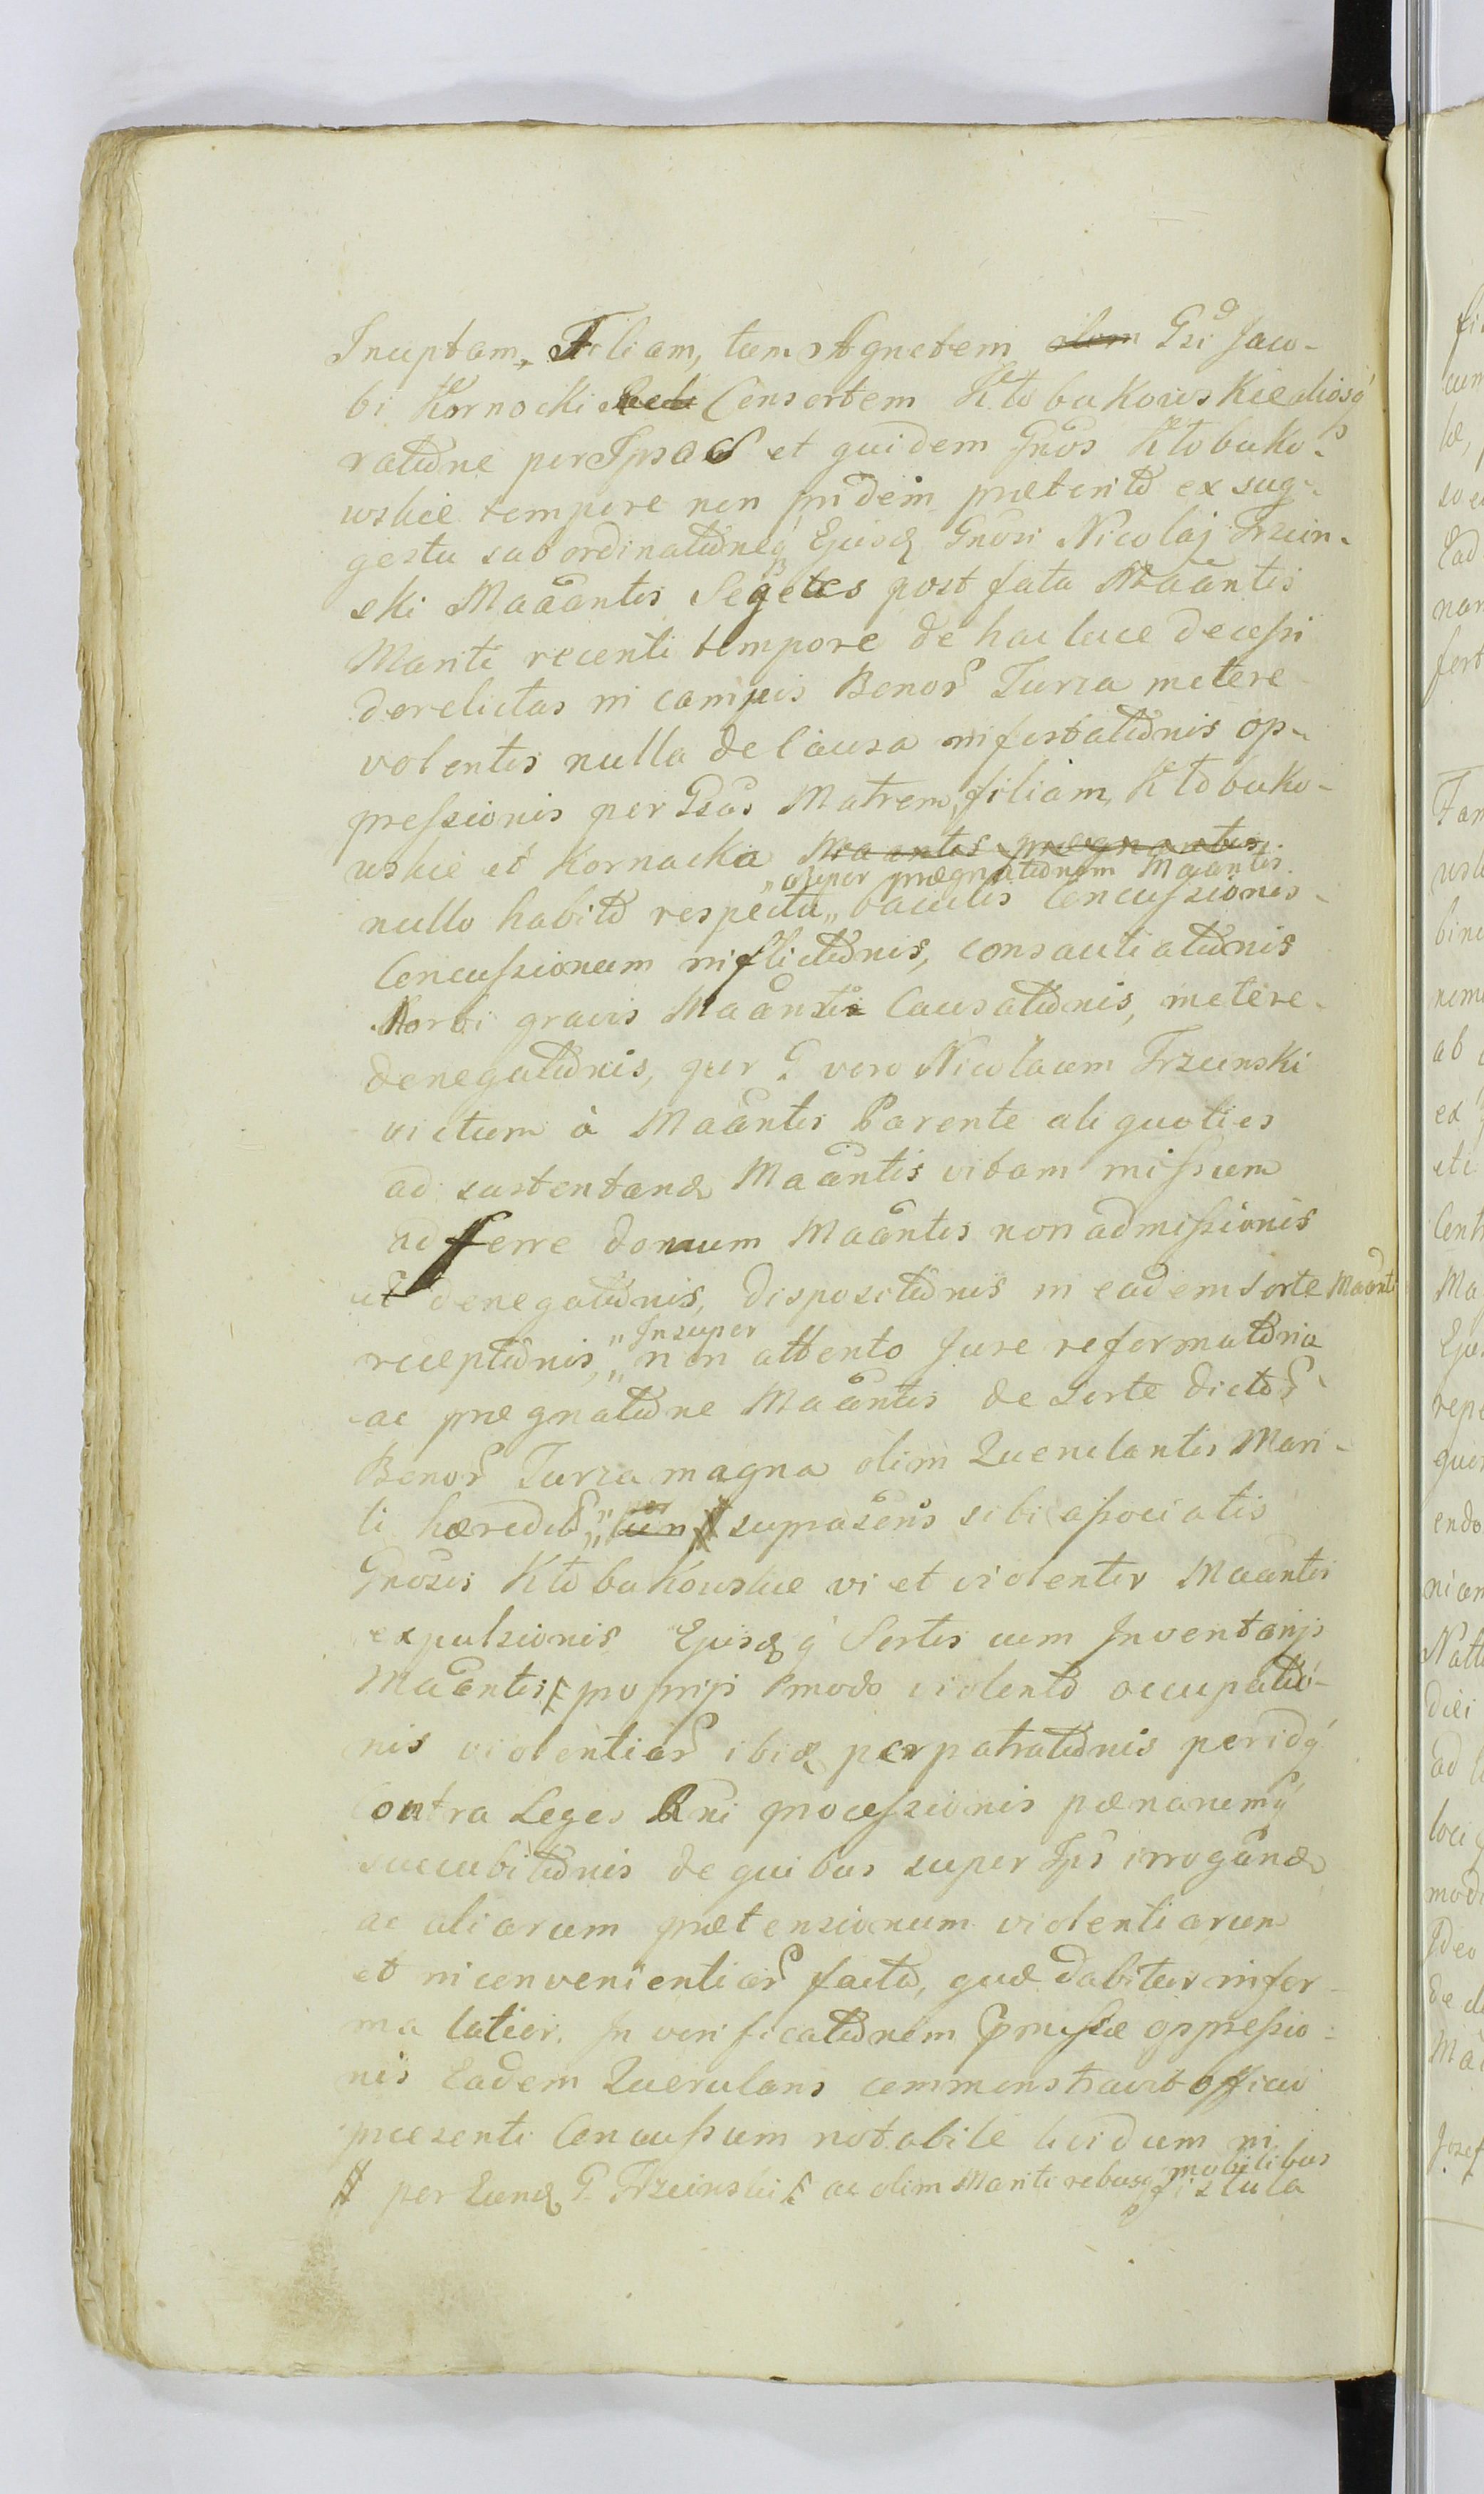 Inuptam, Filiam, tum Agnetem olim Gsi Jaco-
bi Kornocki Consortem Kłobukowskie aliosq́
ratione per Ipsas et quidem Gnos Kłobuko-
wskie tempore non pridem præterito ex sug-
gestu subordinationeq́ Ejusd Gnosi Nicolaj Trzcin-
ski Maaantis Segetes post fata Maantis
Mariti recenti tempore de hac luce decessi
derelictas in campis Bonor Turza metere
volentis nulla de causa infestationis op-
pressionis per Gsas Matrem, filiam, Kłobuko-
wskie et Kornacka Maantis prægnantis
"super prægnationem Maantis
nullo habito respectu" baculis Concussionis-
Concussionum inflictionis, consauciationis
Morbi gravis Maantis Causationis, metere-
denegationis, per G vero Nicolaum Trzcinski
victum à Maantis Parente aliquoties
ad sustentand Maantis vitam missum
adferre domum Maantis non admissionis
et denegationis, dispositionis in eadem sorte Maanti
"Insuper
receptionis," non attento Jure reformationis
ac prægnatione Maantis de sorte dictor
Bonor Turza magna olim Querulantis Mari-
ti hæredit" cum # suprascris sibi associatis
Gnosis Kłobukowskie vi et violenter Maantis
expulsionis Ejusdq́ Sortis cum Inventarijs
Maantis proprijs modo violento occupatio-
nis violentiar ibid perpatrationis peridq́
Contra Leges Rni processionis pænarumq́
succubitionis de quibus super Ips irrogand
ac aliarum prætensionum violentiarum
et inconvenientiar facto, quæ dabitur infor-
ma latior. In verificationem præmissæ oppressio-
nis Eadem Querulans commonstravit officio
præsenti Concussum notabile lividum in
mobilibus
# per Eund G. Trzcinski ac olim Mariti rebusq́ fistula